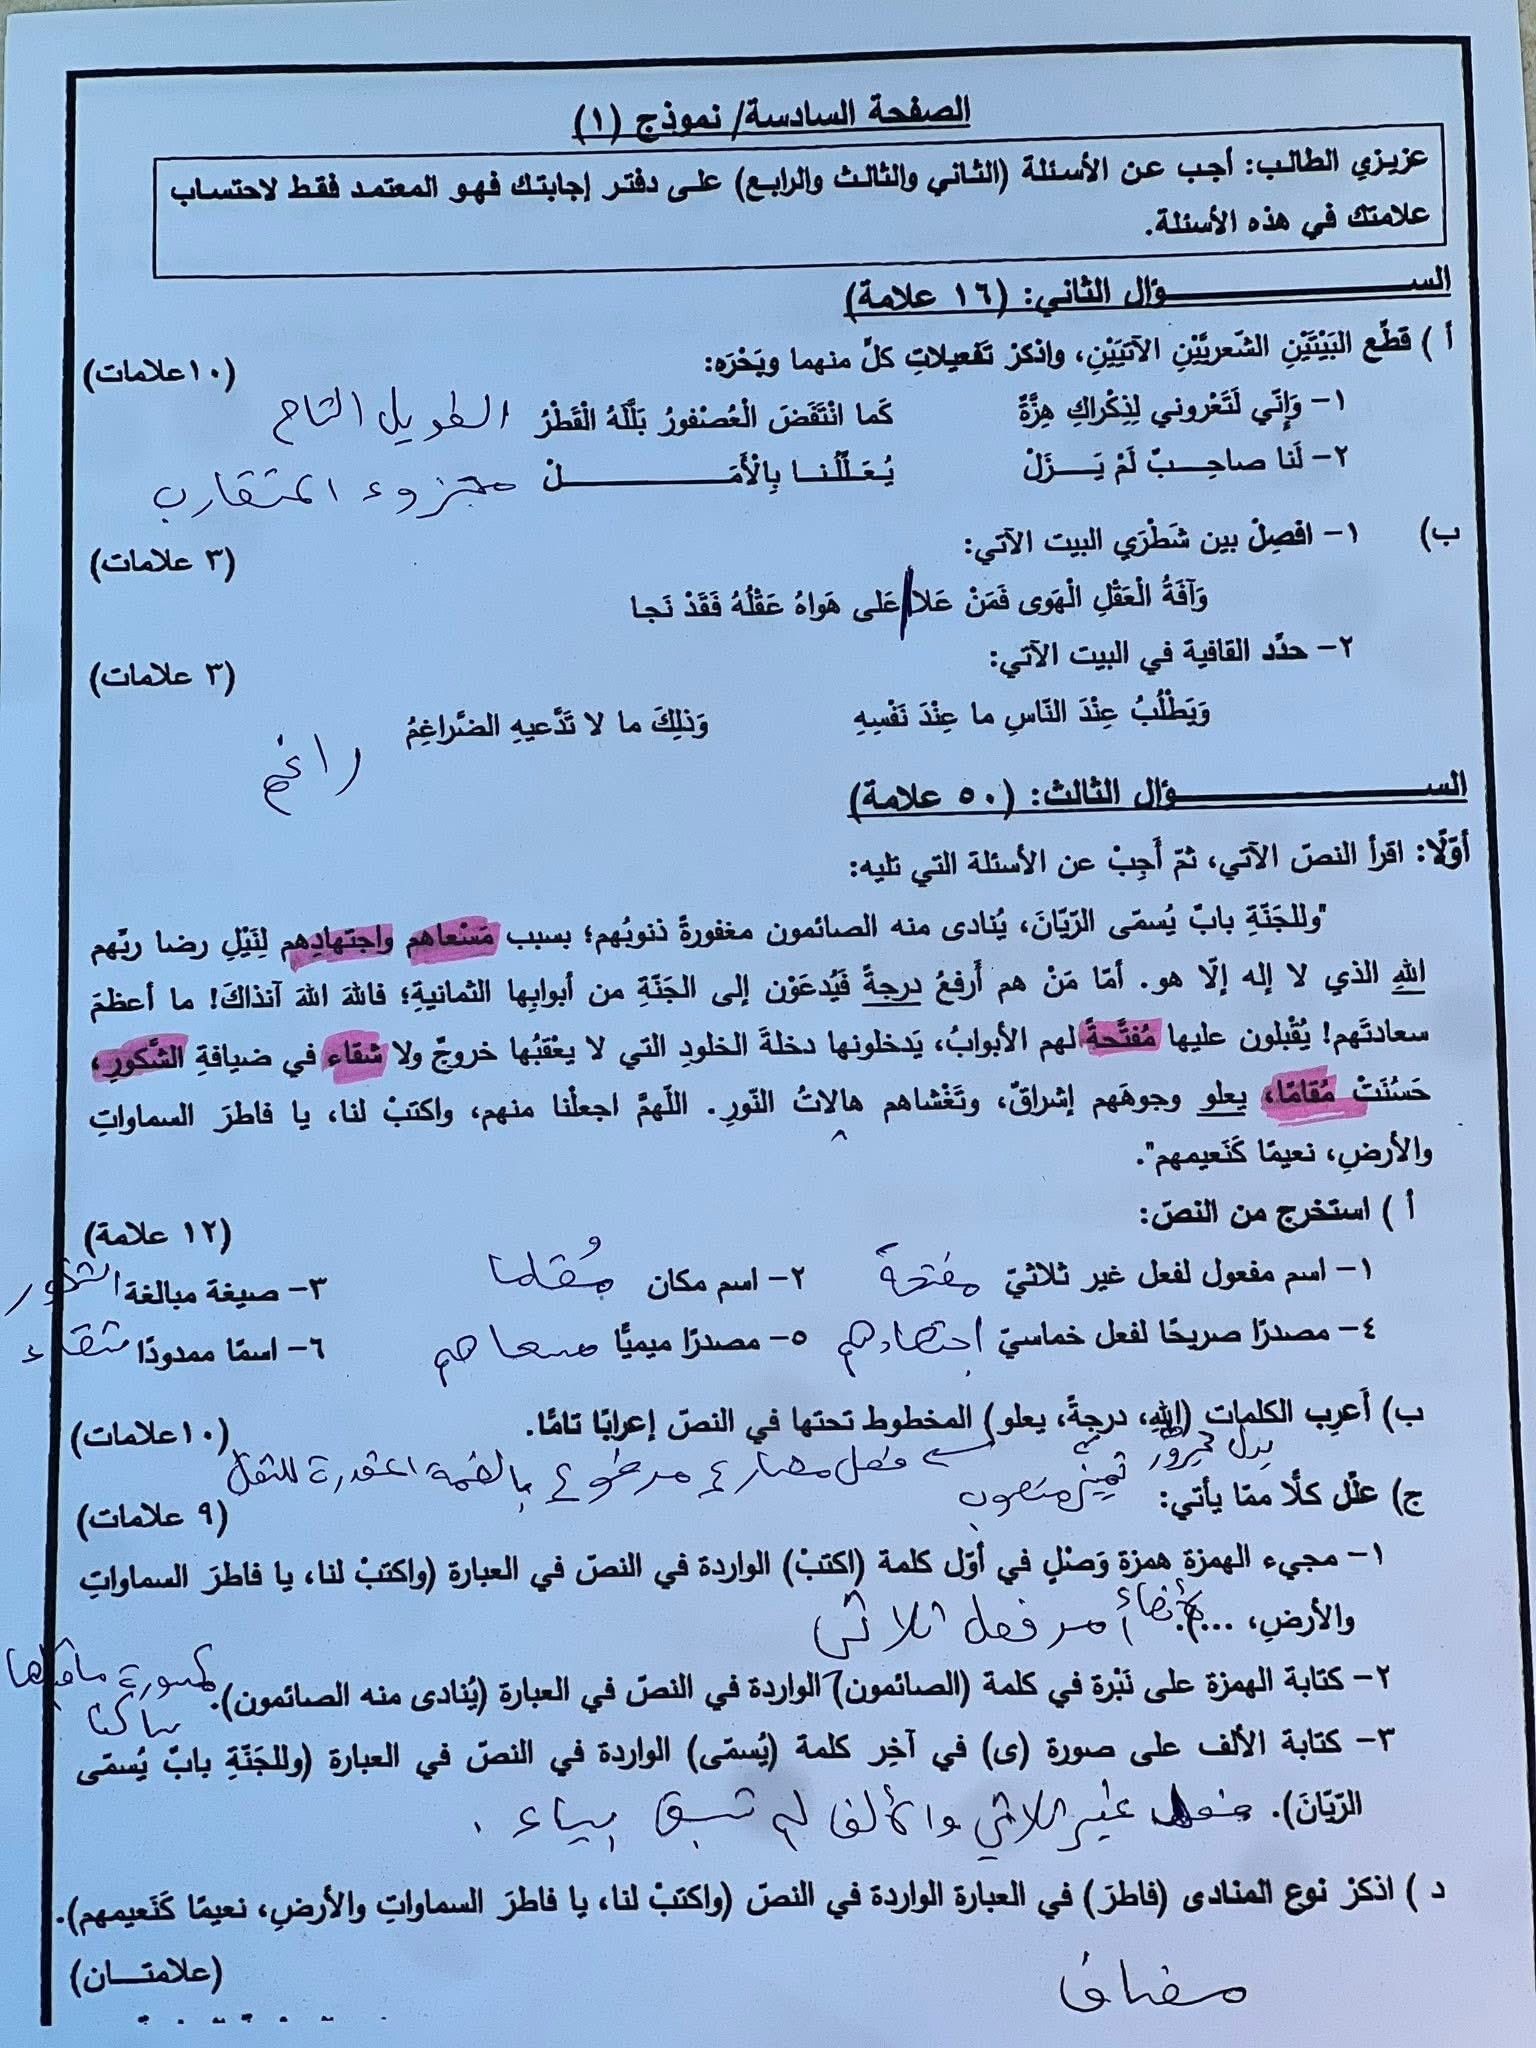 الصفحة السادسة/ نموذج (١)
عزيزي الطالب: أجب عن الأسئلة (الثاني والثالث والرابع) على دفتر إجابتك فهو المعتمد فقط لاحتساب
علامتك في هذه الأسئلة.
الســـــؤال الثاني: (١٦ علامة)
أ ) قطِّع البَيْتَيْنِ الشّعريَّيْنِ الآتيَيْنِ، واذكرْ تَفعيلاتِ كلٍّ منهما وبَحْرَه: (١٠علامات)
١- وَإِنّي لَتَعْروني لِذِكْراكِ هِزَّةٌ كَما انْتَفَضَ الْعُصْفورُ بَلَّلَهُ الْقَطْرُ الطويل التام
٢- لَنا صاحِـبٌ لَمْ يَـــزَلْ يُـعَـلِّلُـنـا بِالْأَمَــــلْ مجزوء المتقارب
ب) ١- افصِلْ بين شَطْرَي البيت الآتي: (٣ علامات)
وَآفَةُ الْعَقْلِ الْهَوى فَمَنْ عَلا / عَلى هَواهُ عَقْلُهُ فَقَدْ نَجا
٢- حدِّد القافية في البيت الآتي: (٣ علامات)
وَيَطْلُبُ عِنْدَ النّاسِ ما عِنْدَ نَفْسِهِ وَذلِكَ ما لا تَدَّعيهِ الضَّراغِمُ
راغم
الســـــؤال الثالث: (٥٠ علامة)
أوّلًا: اقرأ النصّ الآتي، ثمّ أَجِبْ عن الأسئلة التي تليه:
"وللجَنّةِ بابٌ يُسمّى الرّيّانَ، يُنادى منه الصائمون مغفورةً ذنوبُهم؛ بسبب مَسْعاهم واجتهادِهم لِنَيْلِ رضا ربِّهم
اللهِ الذي لا إله إلّا هو. أمّا مَنْ هم أَرفعُ درجةً فَيُدعَوْن إلى الجَنّةِ من أبوابِها الثمانيةِ؛ فاللهَ اللهَ آنذاكَ! ما أعظمَ
سعادتَهم! يُقْبلون عليها مُفتَّحةً لهم الأبوابُ، يَدخلونها دخلةَ الخلودِ التي لا يعْقبُها خروجٌ ولا شقاء في ضيافةِ الشَّكورِ،
حَسُنَتْ مُقامًا، يعلو وجوهَهم إشراقٌ، وتَغْشاهم هالاتُ النّورِ. اللّهمَّ اجعلْنا منهم، واكتبْ لنا، يا فاطرَ السماواتِ
والأرضِ، نعيمًا كَنَعيمهم".
أ ) استخرج من النصّ: (١٢ علامة)
١- اسم مفعول لفعل غير ثلاثيّ مفتحة ٢- اسم مكان مُقاما ٣- صيغة مبالغة الشكور
٤- مصدرًا صريحًا لفعل خماسيّ اجتهادهم ٥- مصدرًا ميميًّا مسعاهم ٦- اسمًا ممدودًا شقاء
ب) أَعرِب الكلمات (اللهِ، درجةً، يعلو) المخطوط تحتها في النصّ إعرابًا تامًّا. (١٠علامات)
بدل مجرور تمييز منصوب فعل مضارع مرفوع بالضمة المقدرة للثقل
ج) علّل كلًّا ممّا يأتي: (٩ علامات)
١- مجيء الهمزة همزة وَصْلٍ في أوّل كلمة (اكتبْ) الواردة في النصّ في العبارة (واكتبْ لنا، يا فاطرَ السماواتِ
والأرضِ، ...). لأنها أمر فعل ثلاثي
٢- كتابة الهمزة على نَبْرة في كلمة (الصائمون) الواردة في النصّ في العبارة (يُنادى منه الصائمون). مكسورة ما قبلها ساكنا
٣- كتابة الألف على صورة (ى) في آخِر كلمة (يُسمّى) الواردة في النصّ في العبارة (وللجَنّةِ بابٌ يُسمّى
الرّيّانَ). فعل غير ثلاثي والألف لم تسبق بياء .
د ) اذكرْ نوع المنادى (فاطرَ) في العبارة الواردة في النصّ (واكتبْ لنا، يا فاطرَ السماواتِ والأرضِ، نعيمًا كَنَعيمهم).
(علامتـــان)
مضاف